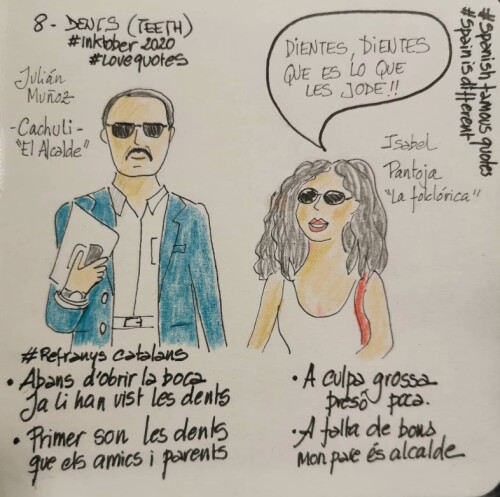 8 - DENTS (TEETH)
#Inktober 2020
#Lovequotes
Julián
Muñoz
- Cachuli -
"El Alcalde"
DIENTES, DIENTES
QUE ES LO QUE
LES JODE!!
Isabel
Pantoja
"La folclórica"
#spanish famous quotes
#spain is different
#Refranys catalans
• Abans d'obrir la boca
Ja li han vist les dents
• Primer son les dents
que els amics i parents
• A culpa grossa
presó poca.
• A falta de bons
mon pare és alcalde